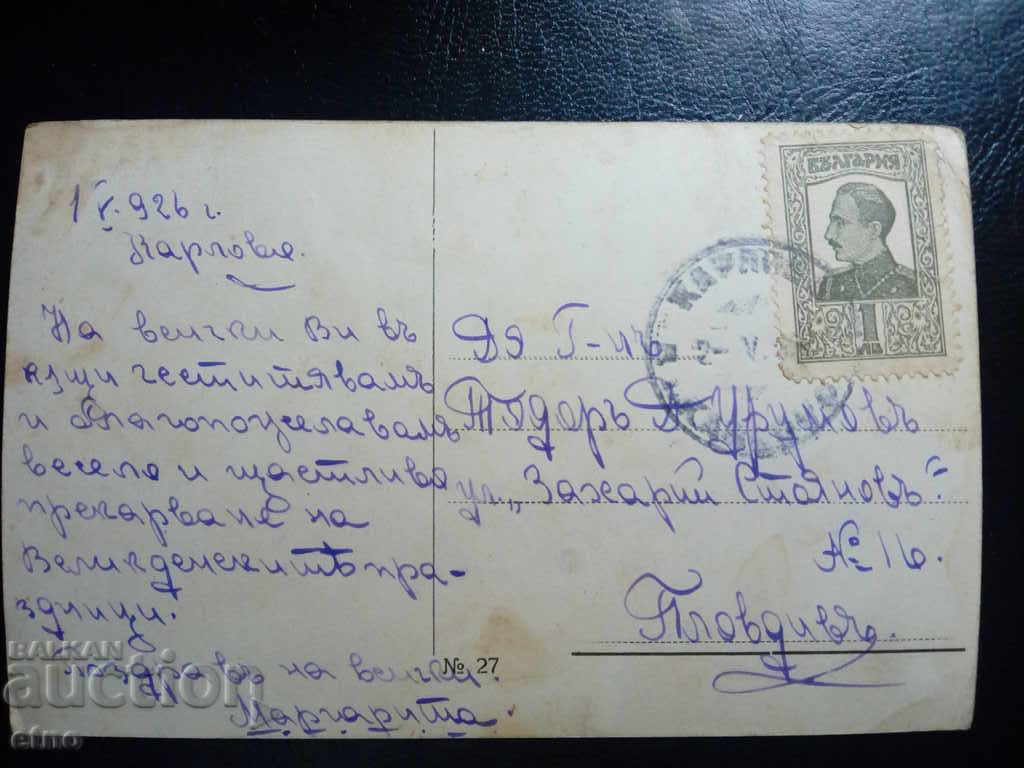 1 V. 926 г.
Карлово.
На всички Ви въ
кѫщи честитявамъ
и благопожелавамъ
весело и щастливо
прекарване на
Великденскитѣ пра-
здници.
Поздравъ на всички.
Маргарита.
БЪЛГАРИЯ
1
ЛВ
2- V.
До Г-нъ
Тодоръ Дурумовъ
ул. „Захарий Стояновъ“
№ 16.
Пловдивъ.
№ 27
BALKAN
auction
etno